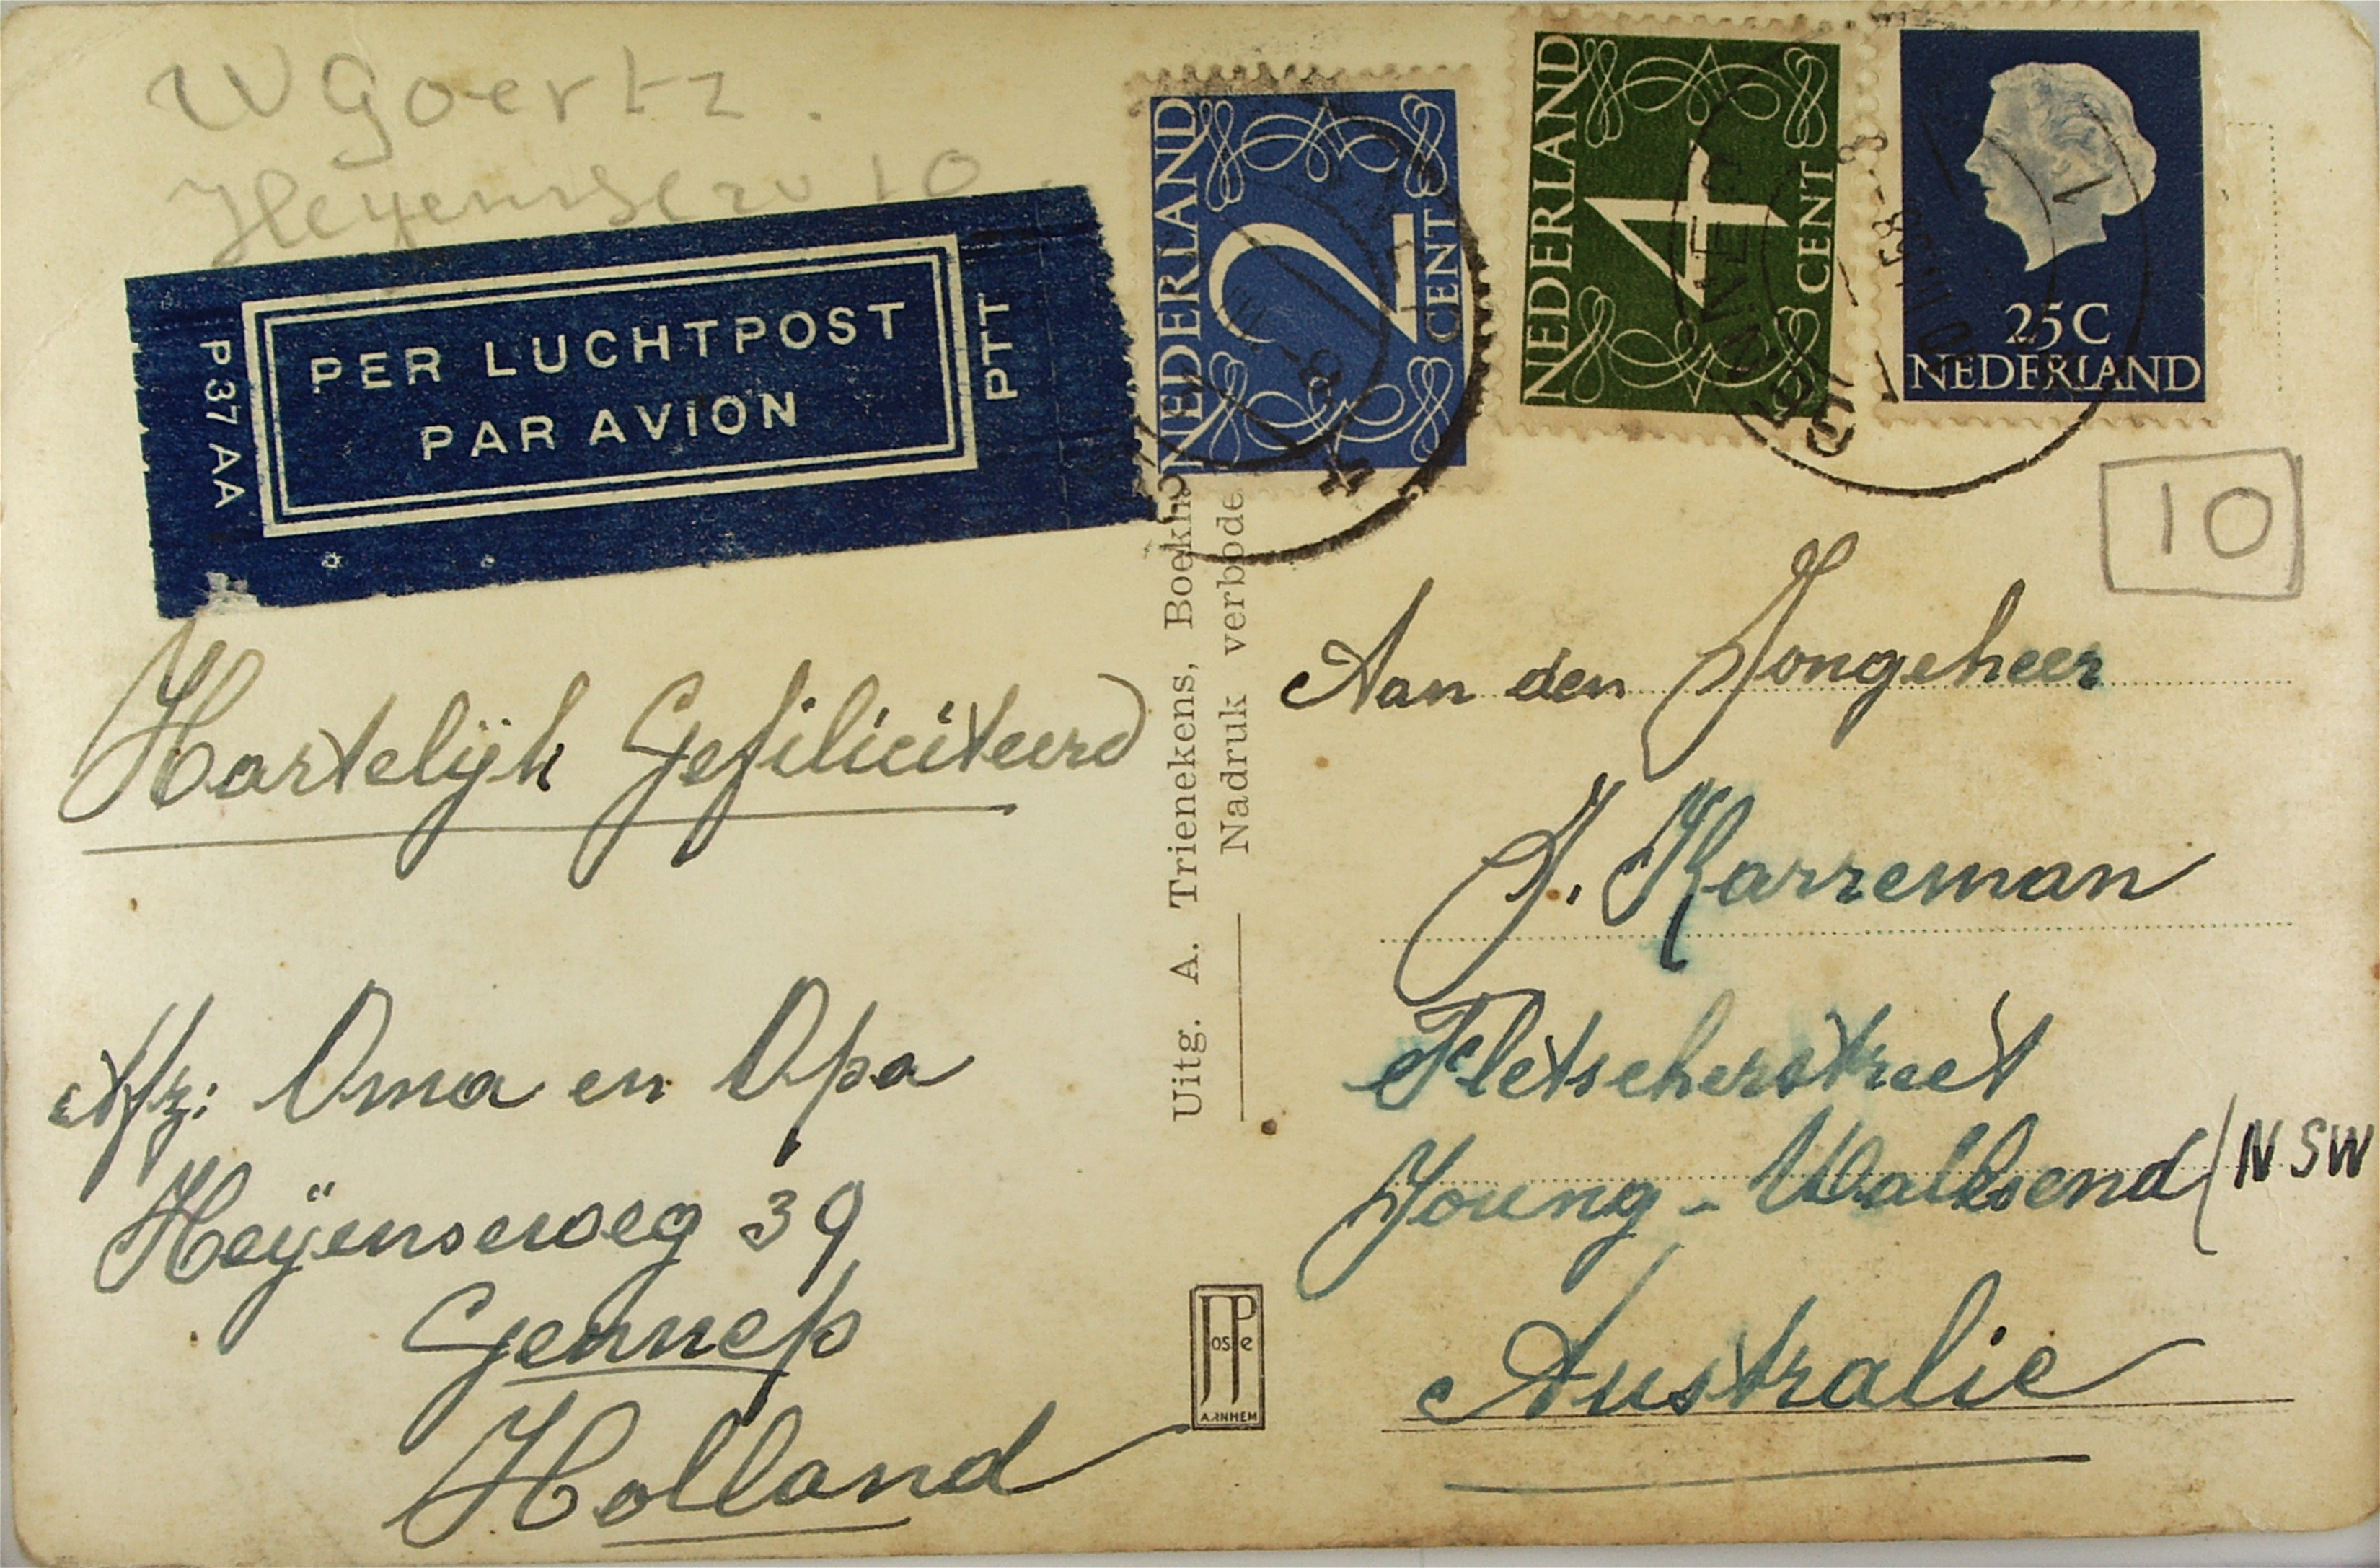 W Goertz.
10
PER LUCHTPOST
PAR AVION
P 37 AA
PTT
NEDERLAND
2
CENT
NEDERLAND
4
CENT
25C
NEDERLAND
GENNEP
10
Hartelijk Gefiliciteerd
Afz: Oma en Opa
Heÿenseweg 39
Gennep
Holland
Uitg. A. Trienekens, Boekh
Nadruk verbode
JosPe
ARNHEM
Aan den Jongeheer
J. Karreman
Fletscherstreet
Young - Wallsend (NSW
Australie